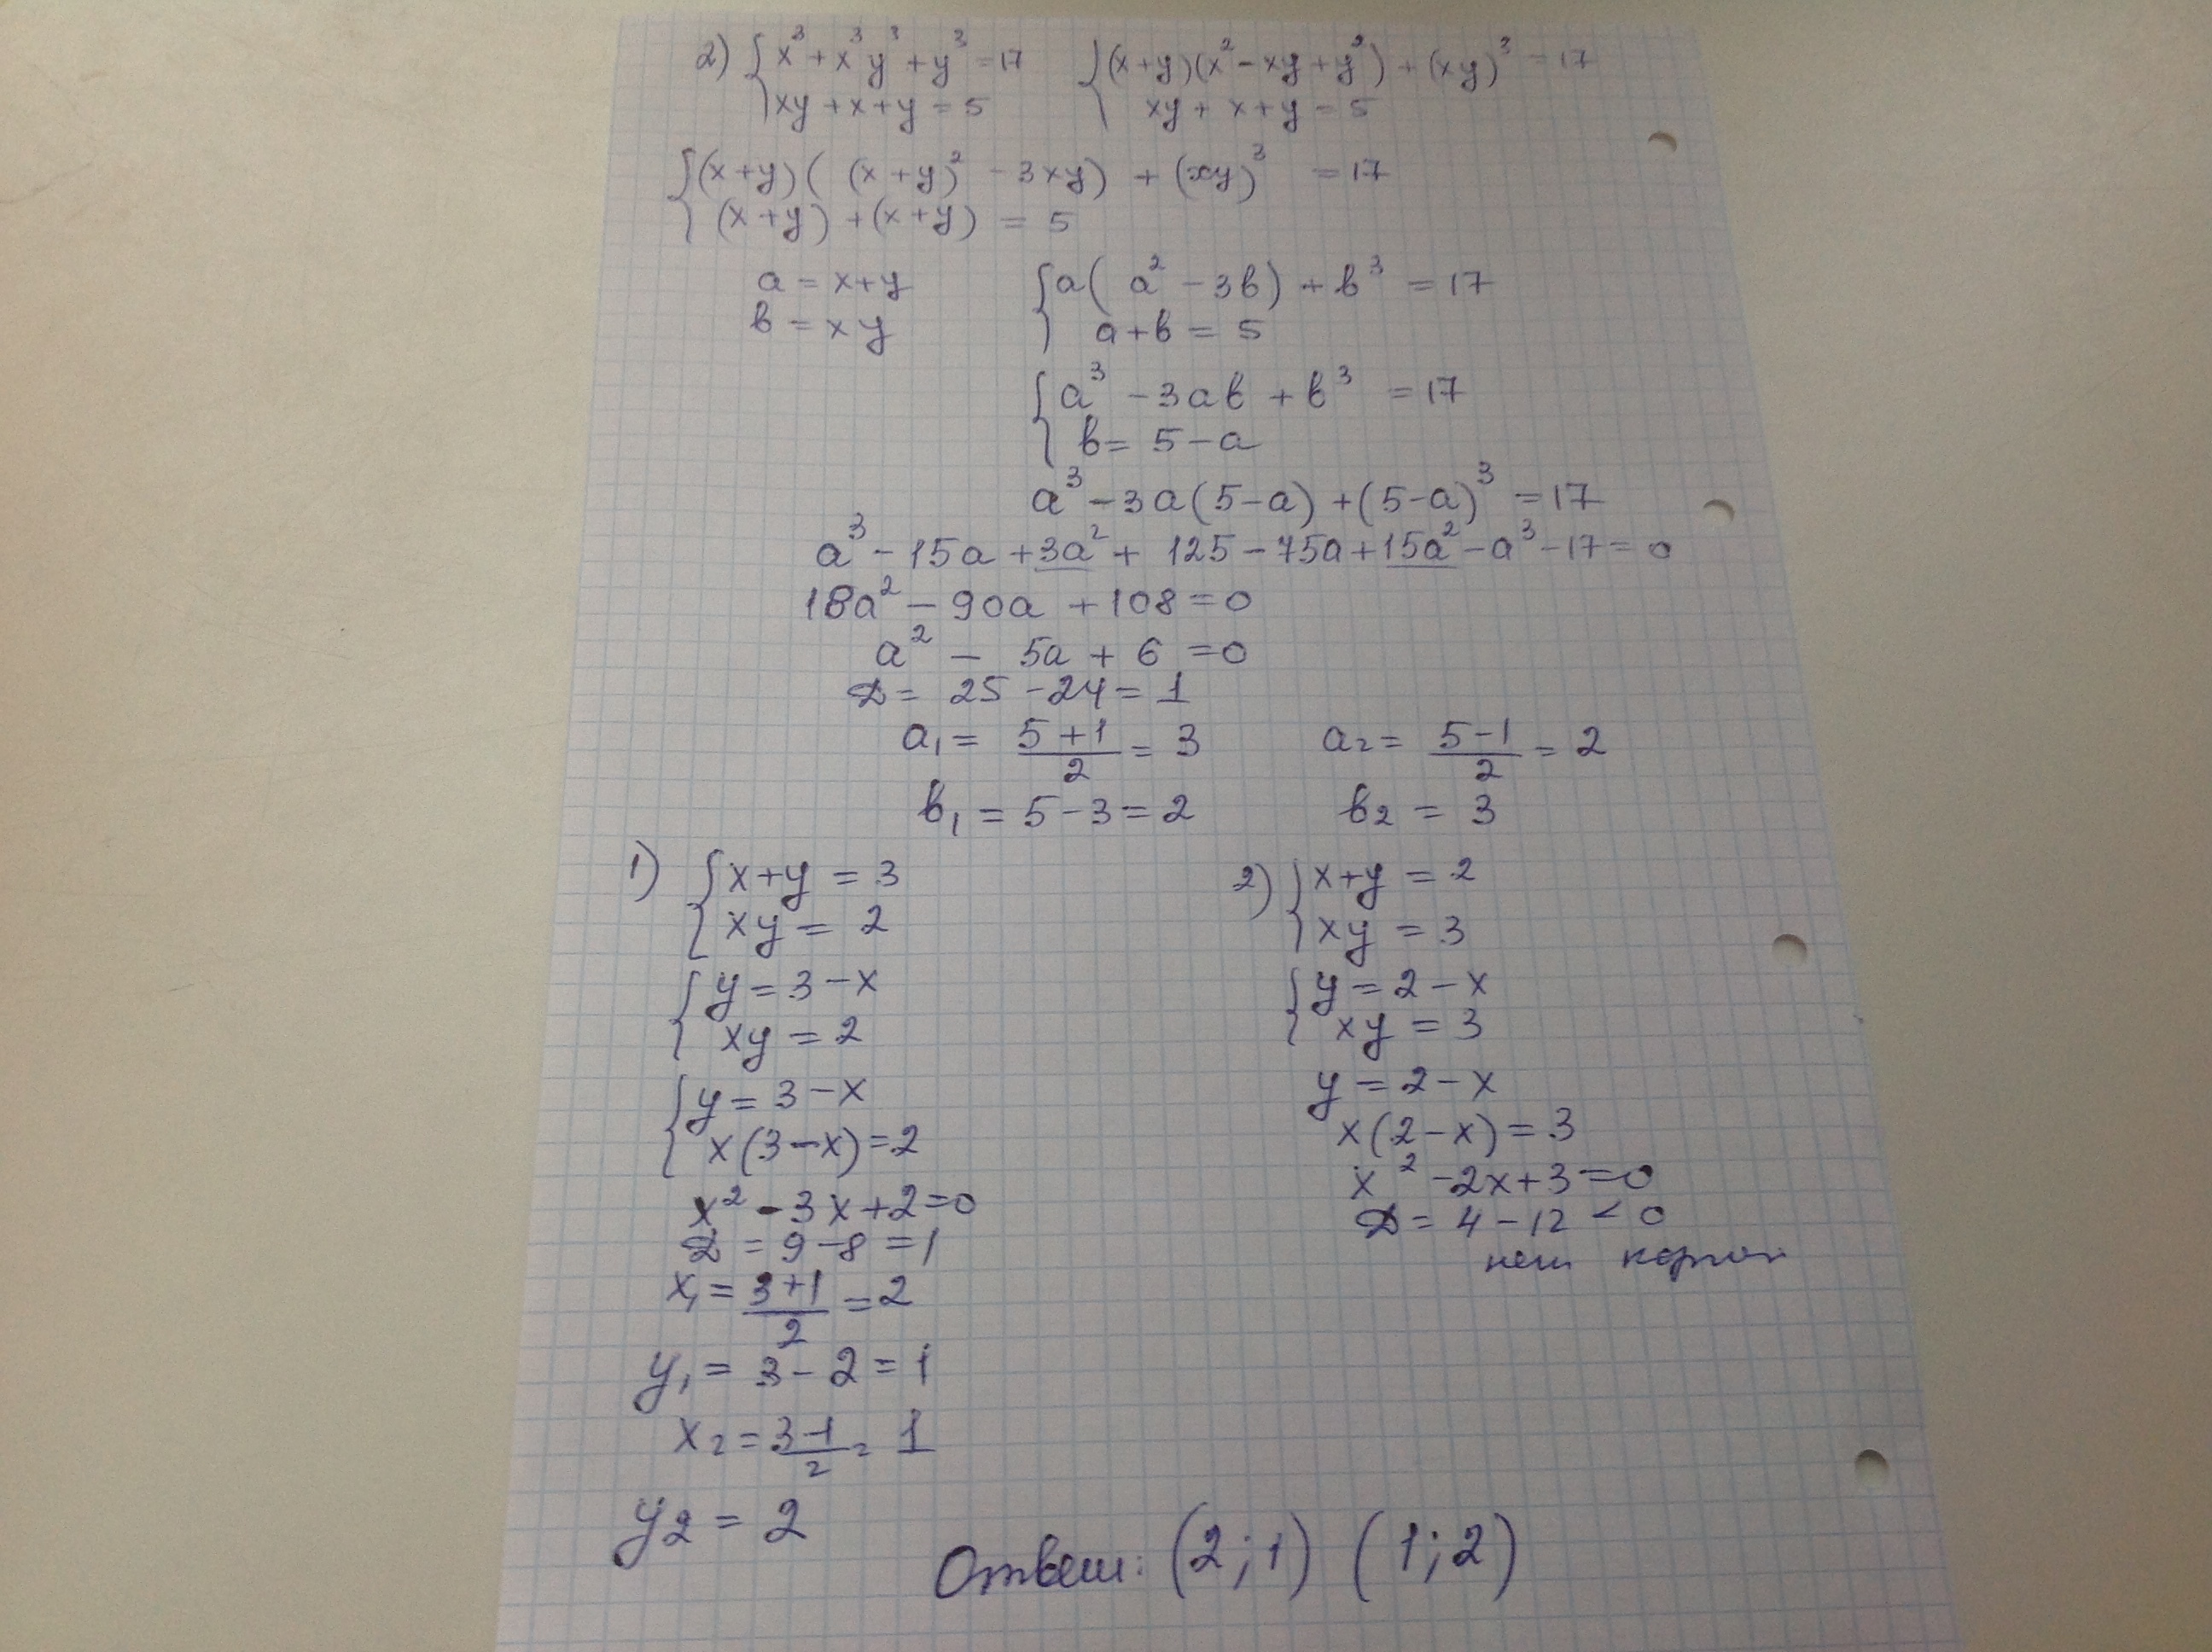 2) { x³ + x³y³ + y³ = 17 { (x+y)(x² - xy + y²) + (xy)³ = 17
xy + x + y = 5 xy + x + y = 5
{ (x+y)( (x+y)² - 3xy) + (xy)³ = 17
(x+y) + (x+y) = 5
a = x+y { a( a² - 3b) + b³ = 17
b = xy a + b = 5
{ a³ - 3ab + b³ = 17
b = 5 - a
a³ - 3a(5-a) + (5-a)³ = 17
a³ - 15a + 3a² + 125 - 75a + 15a² - a³ - 17 = 0
18a² - 90a + 108 = 0
a² - 5a + 6 = 0
D = 25 - 24 = 1
a₁ = (5+1)/2 = 3 a₂ = (5-1)/2 = 2
b₁ = 5 - 3 = 2 b₂ = 3
1) { x+y = 3
xy = 2
{ y = 3 - x
xy = 2
{ y = 3 - x
x(3-x) = 2
x² - 3x + 2 = 0
D = 9 - 8 = 1
x₁ = (3+1)/2 = 2
y₁ = 3 - 2 = 1
x₂ = (3-1)/2 = 1
y₂ = 2
2) { x+y = 2
xy = 3
{ y = 2 - x
xy = 3
y = 2 - x
x(2-x) = 3
x² - 2x + 3 = 0
D = 4 - 12 < 0
нет корней
Ответ: (2;1) (1;2)